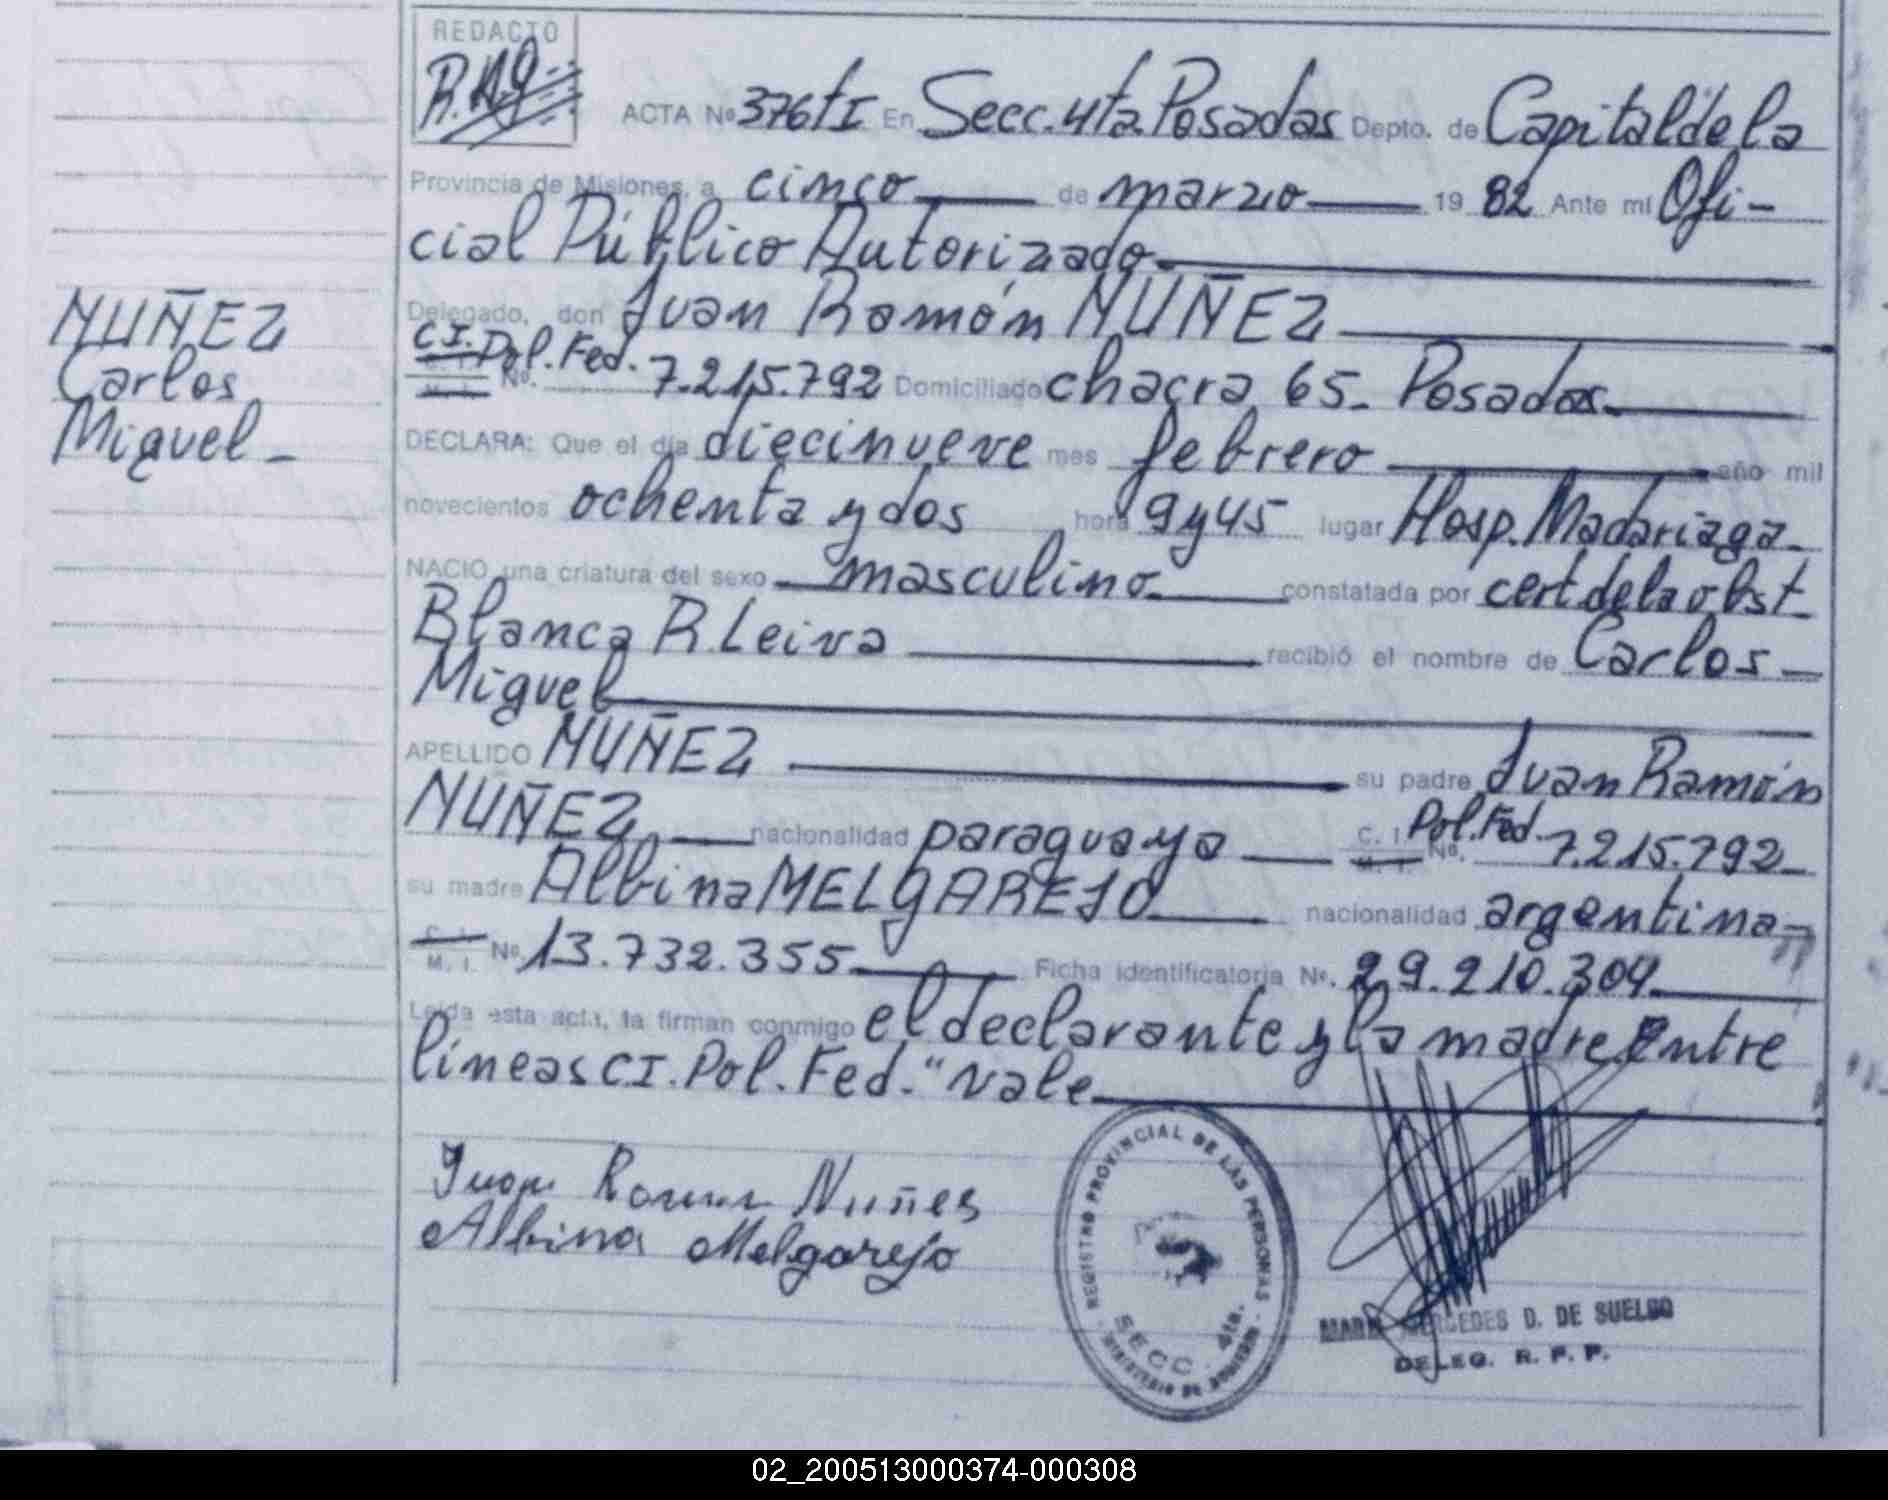 REDACTO
R.A.g
ACTA Nº 376tI En Secc. 4ta. Posadas Depto. de Capital de la
Provincia de Misiones, a cinco de marzo 19 82 Ante mi Ofi-
cial Público Autorizado
Delegado, don Juan Ramón NUÑEZ
C.I. Pol. Fed.
M. I. Nº. 7.215.792 Domiciliado chacra 65_ Posadas
NUÑEZ
Carlos
Miguel _
DECLARA: Que el día diecinueve mes febrero año mil
novecientos ochenta y dos hora 9 y 45 lugar Hosp. Madariaga_
NACIO una criatura del sexo masculino constatada por cert de la obst
Blanca R. Leiva recibió el nombre de Carlos
Miguel
APELLIDO NUÑEZ su padre Juan Ramón
NUÑEZ nacionalidad paraguaya C. I. Pol. Fed.
M. I. Nº. 7.215.792_
su madre Albina MELGAREJO nacionalidad argentina
C. I.
M. I. Nº. 13.732.355 Ficha identificatoria Nº. 29.210.304
Leída esta acta, la firman conmigo el declarante y la madre. Entre
líneas CI. Pol. Fed. "vale
Juan Ramon Nuñes
Albina Melgarejo
REGISTRO PROVINCIAL DE LAS PERSONAS
SECC. 4ta.
MINISTERIO DE GOBIERNO
MARIA MERCEDES D. DE SUELDO
DELEG. R. P. P.
02_200513000374-000308